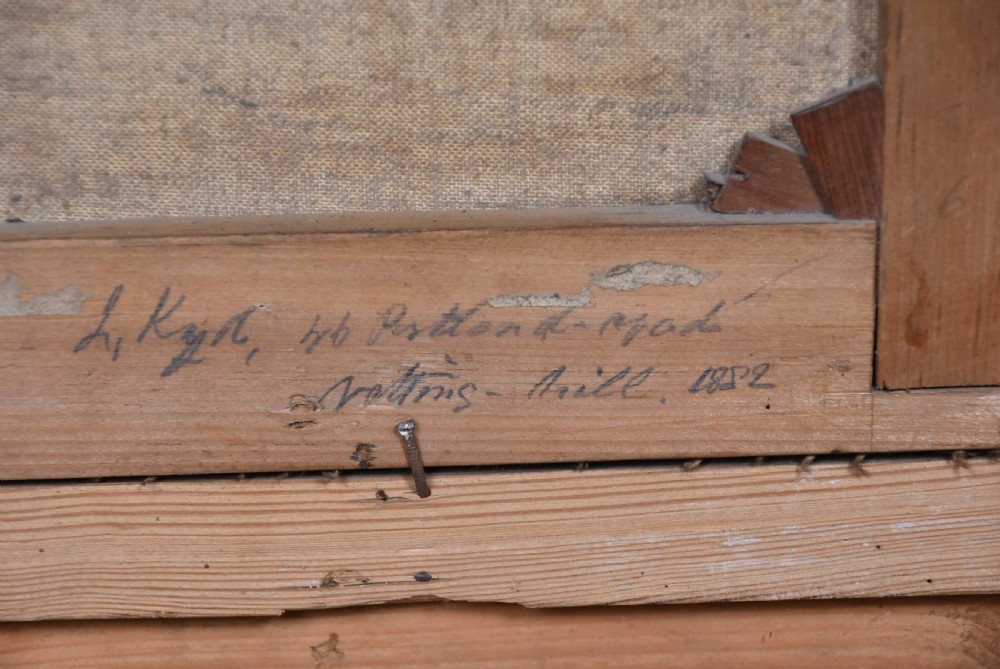 L, Kyd, 46 Portland-road
Notting-hill. 1882